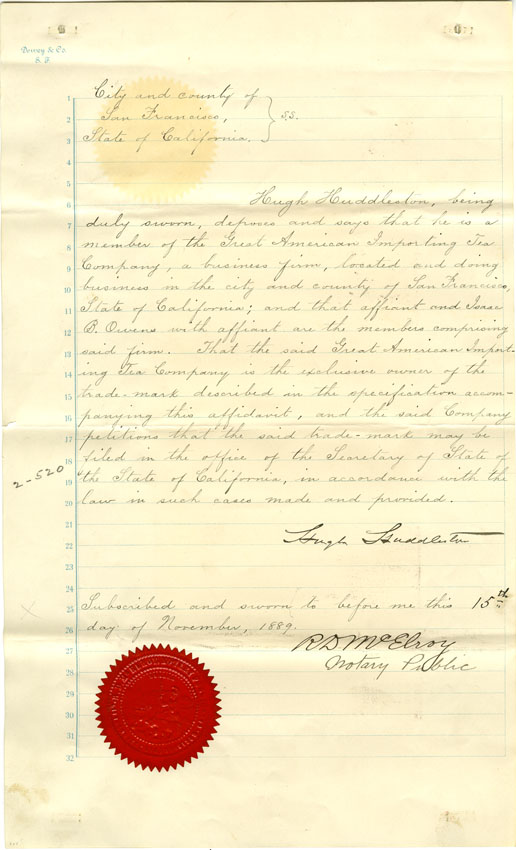 Dewey & Co.
S. F.
1
2
3
4
5
6
7
8
9
10
11
12
13
14
15
16
17
18
19
20
21
22
23
24
25
26
27
28
29
30
31
32
City and county of
San Francisco,
State of California.
} ss.
Hugh Huddleston, being
duly sworn, deposes and says that he is a
member of the Great American Importing Tea
Company, a business firm, located and doing
business in the city and county of San Francisco,
State of California; and that affiant and Isaac
B. Owens with affiant are the members comprising
said firm. That the said Great American Import-
ing Tea Company is the exclusive owner of the
trade-mark described in the specification accom-
panying this affidavit, and the said Company
petitions that the said trade-mark may be
filed in the office of the Secretary of State of
the State of California, in accordance with the
law in such cases made and provided.
2-520
Hugh Huddleston
Subscribed and sworn to before me this 15th
day of November, 1889.
R D McElroy
Notary Public